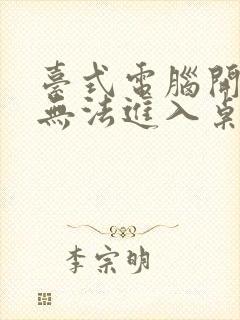 臺式電腦開
無法進入桌
李宗明